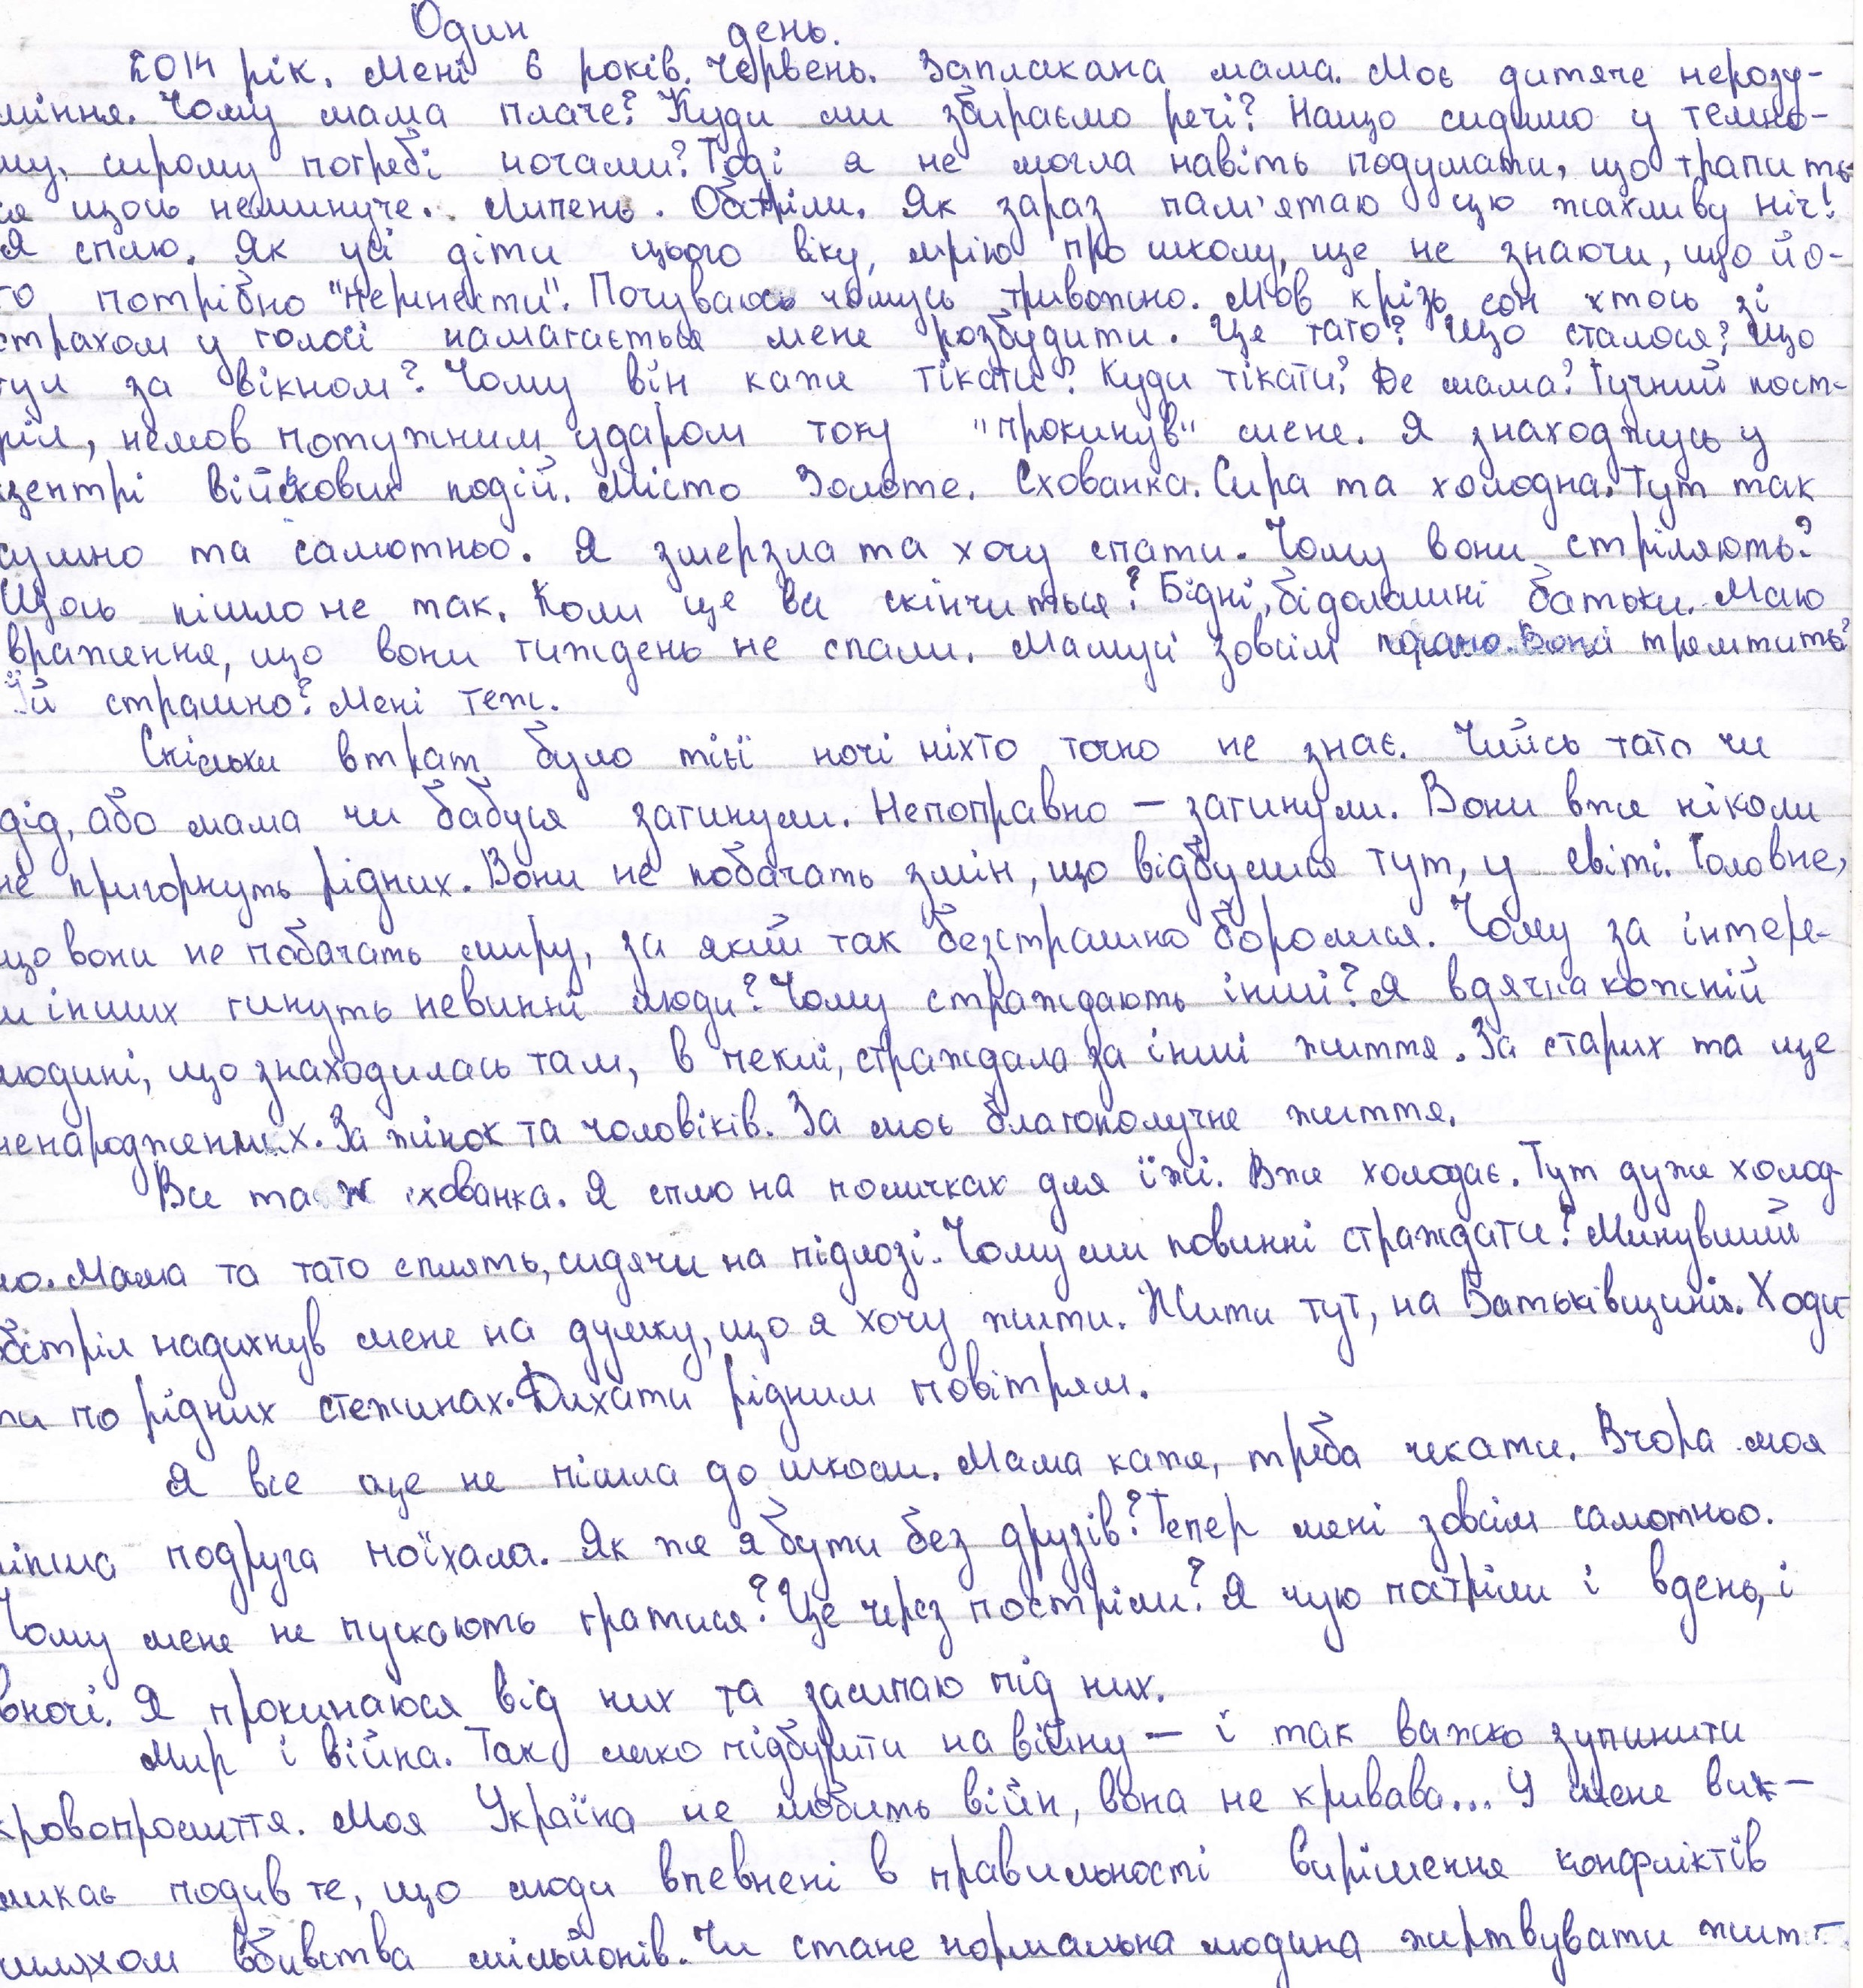 Один день.
2014 рік. Мені 6 років. Червень. Заплакана мама. Моє дитяче нерозу-
міння. Чому мама плаче? Куди ми збираємо речі? Нащо сидимо у темно-
му, сирому погребі ночами? Тоді я не могла навіть подумати, що трапить-
ся щось неминуче. Липень. Обстріли. Як зараз пам'ятаю цю жахливу ніч!
Я сплю. Як усі діти цього віку, мрію про школу, ще не знаючи, що йо-
го потрібно "перенести". Почуваюсь чомусь тривожно. Мов крізь сон хтось зі
страхом у голосі намагається мене розбудити. Це тато? Що сталося? Що
гул за вікном? Чому він каже тікати? Куди тікати? Де мама? Гучний пост-
ріл, немов потужним ударом току "прокинув" мене. Я знаходжусь у
центрі військових подій. Місто Золоте. Схованка. Сира та холодна. Тут так
сумно та самотньо. Я змерзла та хочу спати. Чому вони стріляють?
Щось пішло не так. Коли це все скінчиться? Бідні, бідолашні батьки. Маю
враження, що вони тиждень не спали. Мамусі зовсім погано. Вона тремтить?
Їй страшно? Мені теж.
Скільки втрат було тієї ночі ніхто точно не знає. Чийсь тато чи
дід, або мама чи бабуся загинули. Непоправно – загинули. Вони вже ніколи
не пригорнуть рідних. Вони не побачать змін, що відбулися тут, у світі. Головне,
що вони не побачать миру, за який так безстрашно боролися. Чому за інтере-
си інших гинуть невинні люди? Чому страждають інші? Я вдячна кожній
людині, що знаходилась там, в пеклі, страждала за інші життя. За старих та ще
ненароджених. За жінок та чоловіків. За моє благополучне життя.
Все та ж схованка. Я сплю на поличках для їжі. Вже холодає. Тут дуже холод-
но. Мама та тато сплять, сидячи на підлозі. Чому ми повинні страждати? Минувший
обстріл надихнув мене на думку, що я хочу жити. Жити тут, на Батьківщині. Ходи-
ти по рідних стежинах. Дихати рідним повітрям.
Я все ще не пішла до школи. Мама каже, треба чекати. Вчора моя
ліпша подруга поїхала. Як же я бути без друзів? Тепер мені зовсім самотньо.
Чому мене не пускають гратися? Це через постріли? Я чую постріли і вдень, і
вночі. Я прокинаюся від них та засинаю під них.
Мир і війна. Так легко підбурити на війну – і так важко зупинити
кровопролиття. Моя Україна не любить війн, вона не кривава... У мене вик-
ликає подив те, що люди впевнені в правильності вирішення конфліктів
шляхом вбивства мільйонів. Чи стане нормальна людина жертвувати жит-